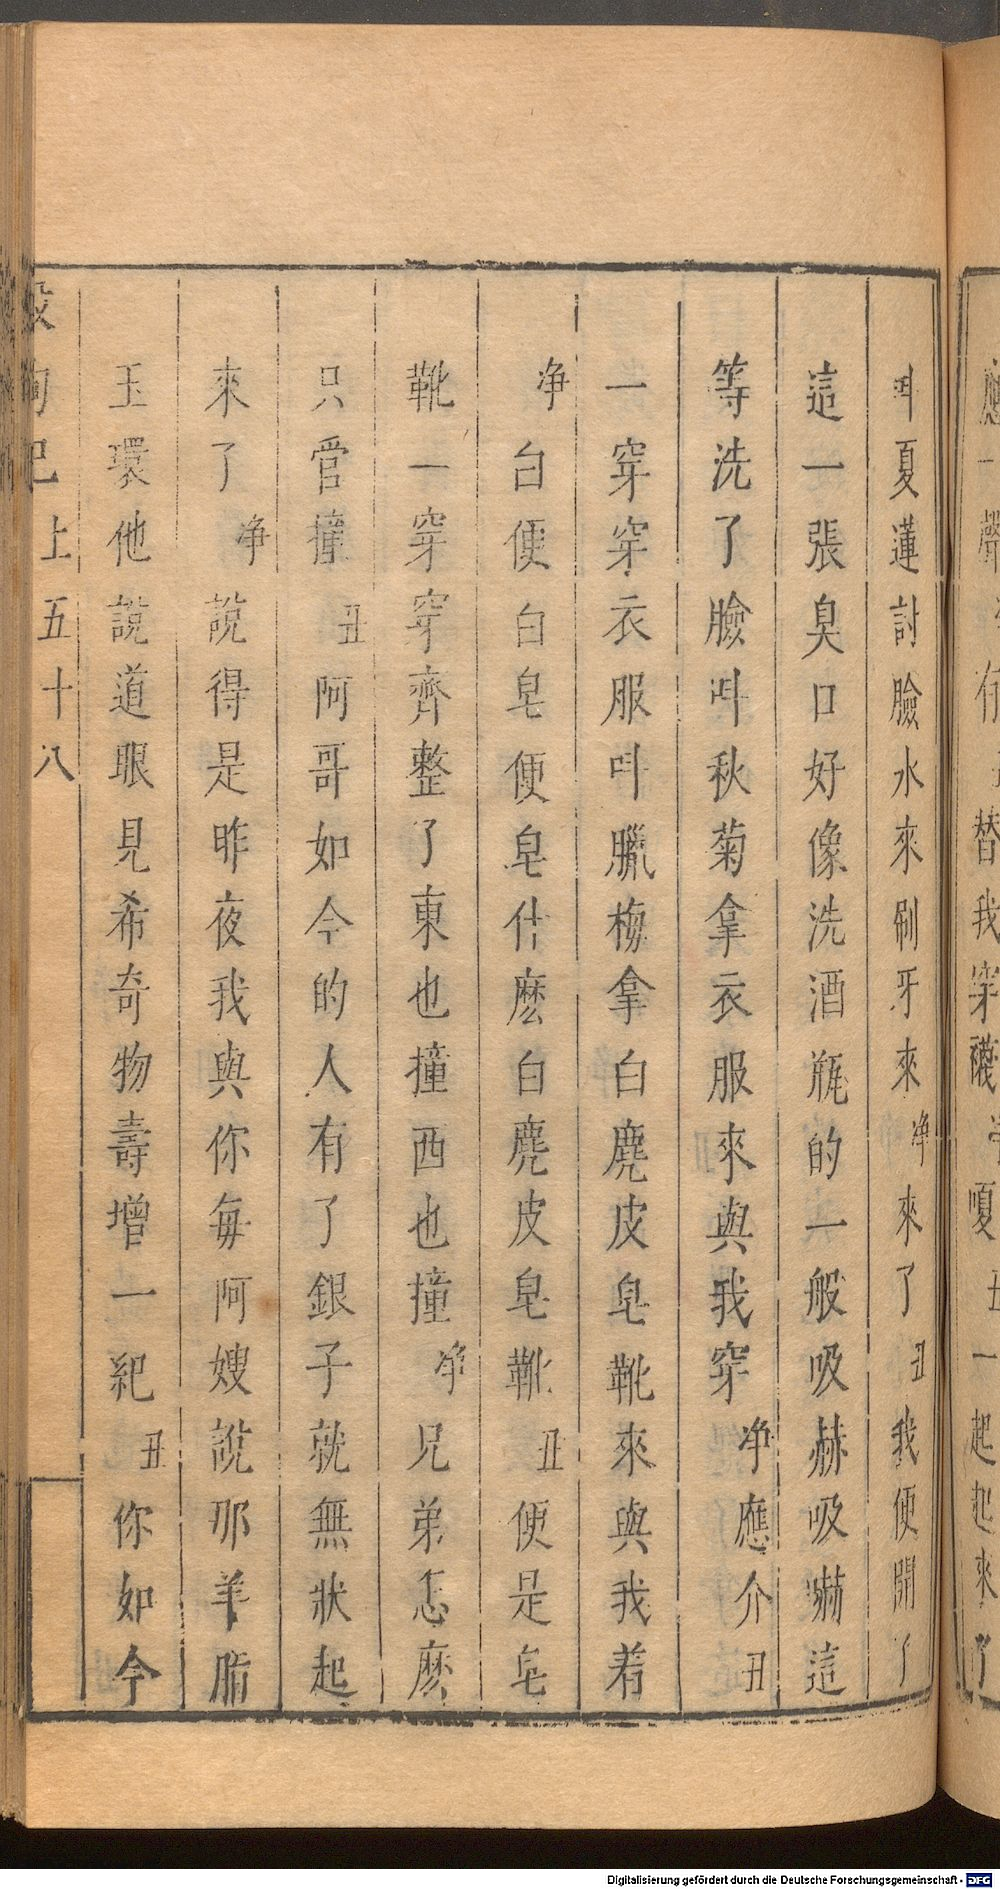 叫夏蓮討臉水來刷牙來净來了丑我便開了
這一張臭口好像洗酒瓶的一般吸赫吸嚇這
等洗了臉叫秋菊拿衣服來與我穿净應介丑
一穿穿衣服叫臘梅拿白麂皮皂靴來與我着
净白便白皂便皂什麽白麂皮皂靴丑便是皂
靴一穿穿齊整了東也撞西也撞净兄弟怎麽
只管撞丑阿哥如今的人有了銀子就無狀起
來了净說得是昨夜我與你每阿嫂說那羊脂
玉環他說道眼見希奇物壽增一紀丑你如今
殺狗記上五十八
我穿襪
起起來了
Digitalisierung gefördert durch die Deutsche Forschungsgemeinschaft - DFG